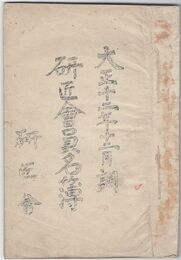 大正十二年十二月調
研匠會會員名簿
研匠會